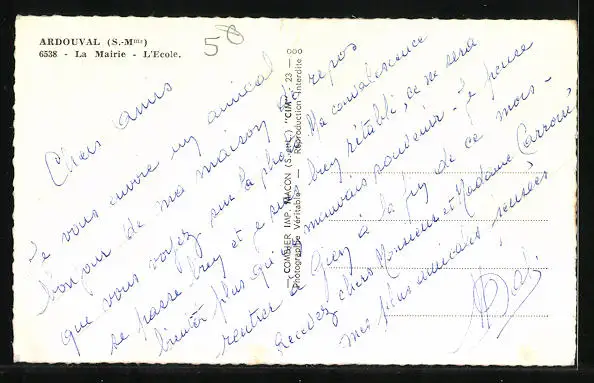 ARDOUVAL (S.-Mme)
6538 - La Mairie - L'Ecole.
58
Chers amis
Je vous envoie un amical
bonjour de ma maison de repos
que vous voyez sur la photo. Ma convalescence
se passe bien et je suis bien rétabli, ce ne sera
bientôt plus qu'un mauvais souvenir. Je pense
rentrer à Gien à la fin de ce mois -
Recevez chers Monsieur et Madame Carroué
mes plus amicales pensées
— COMBIER IMP. MACON (S.-et-L.) "CIM" — 23 —
Photographie Véritable - Reproduction Interdite